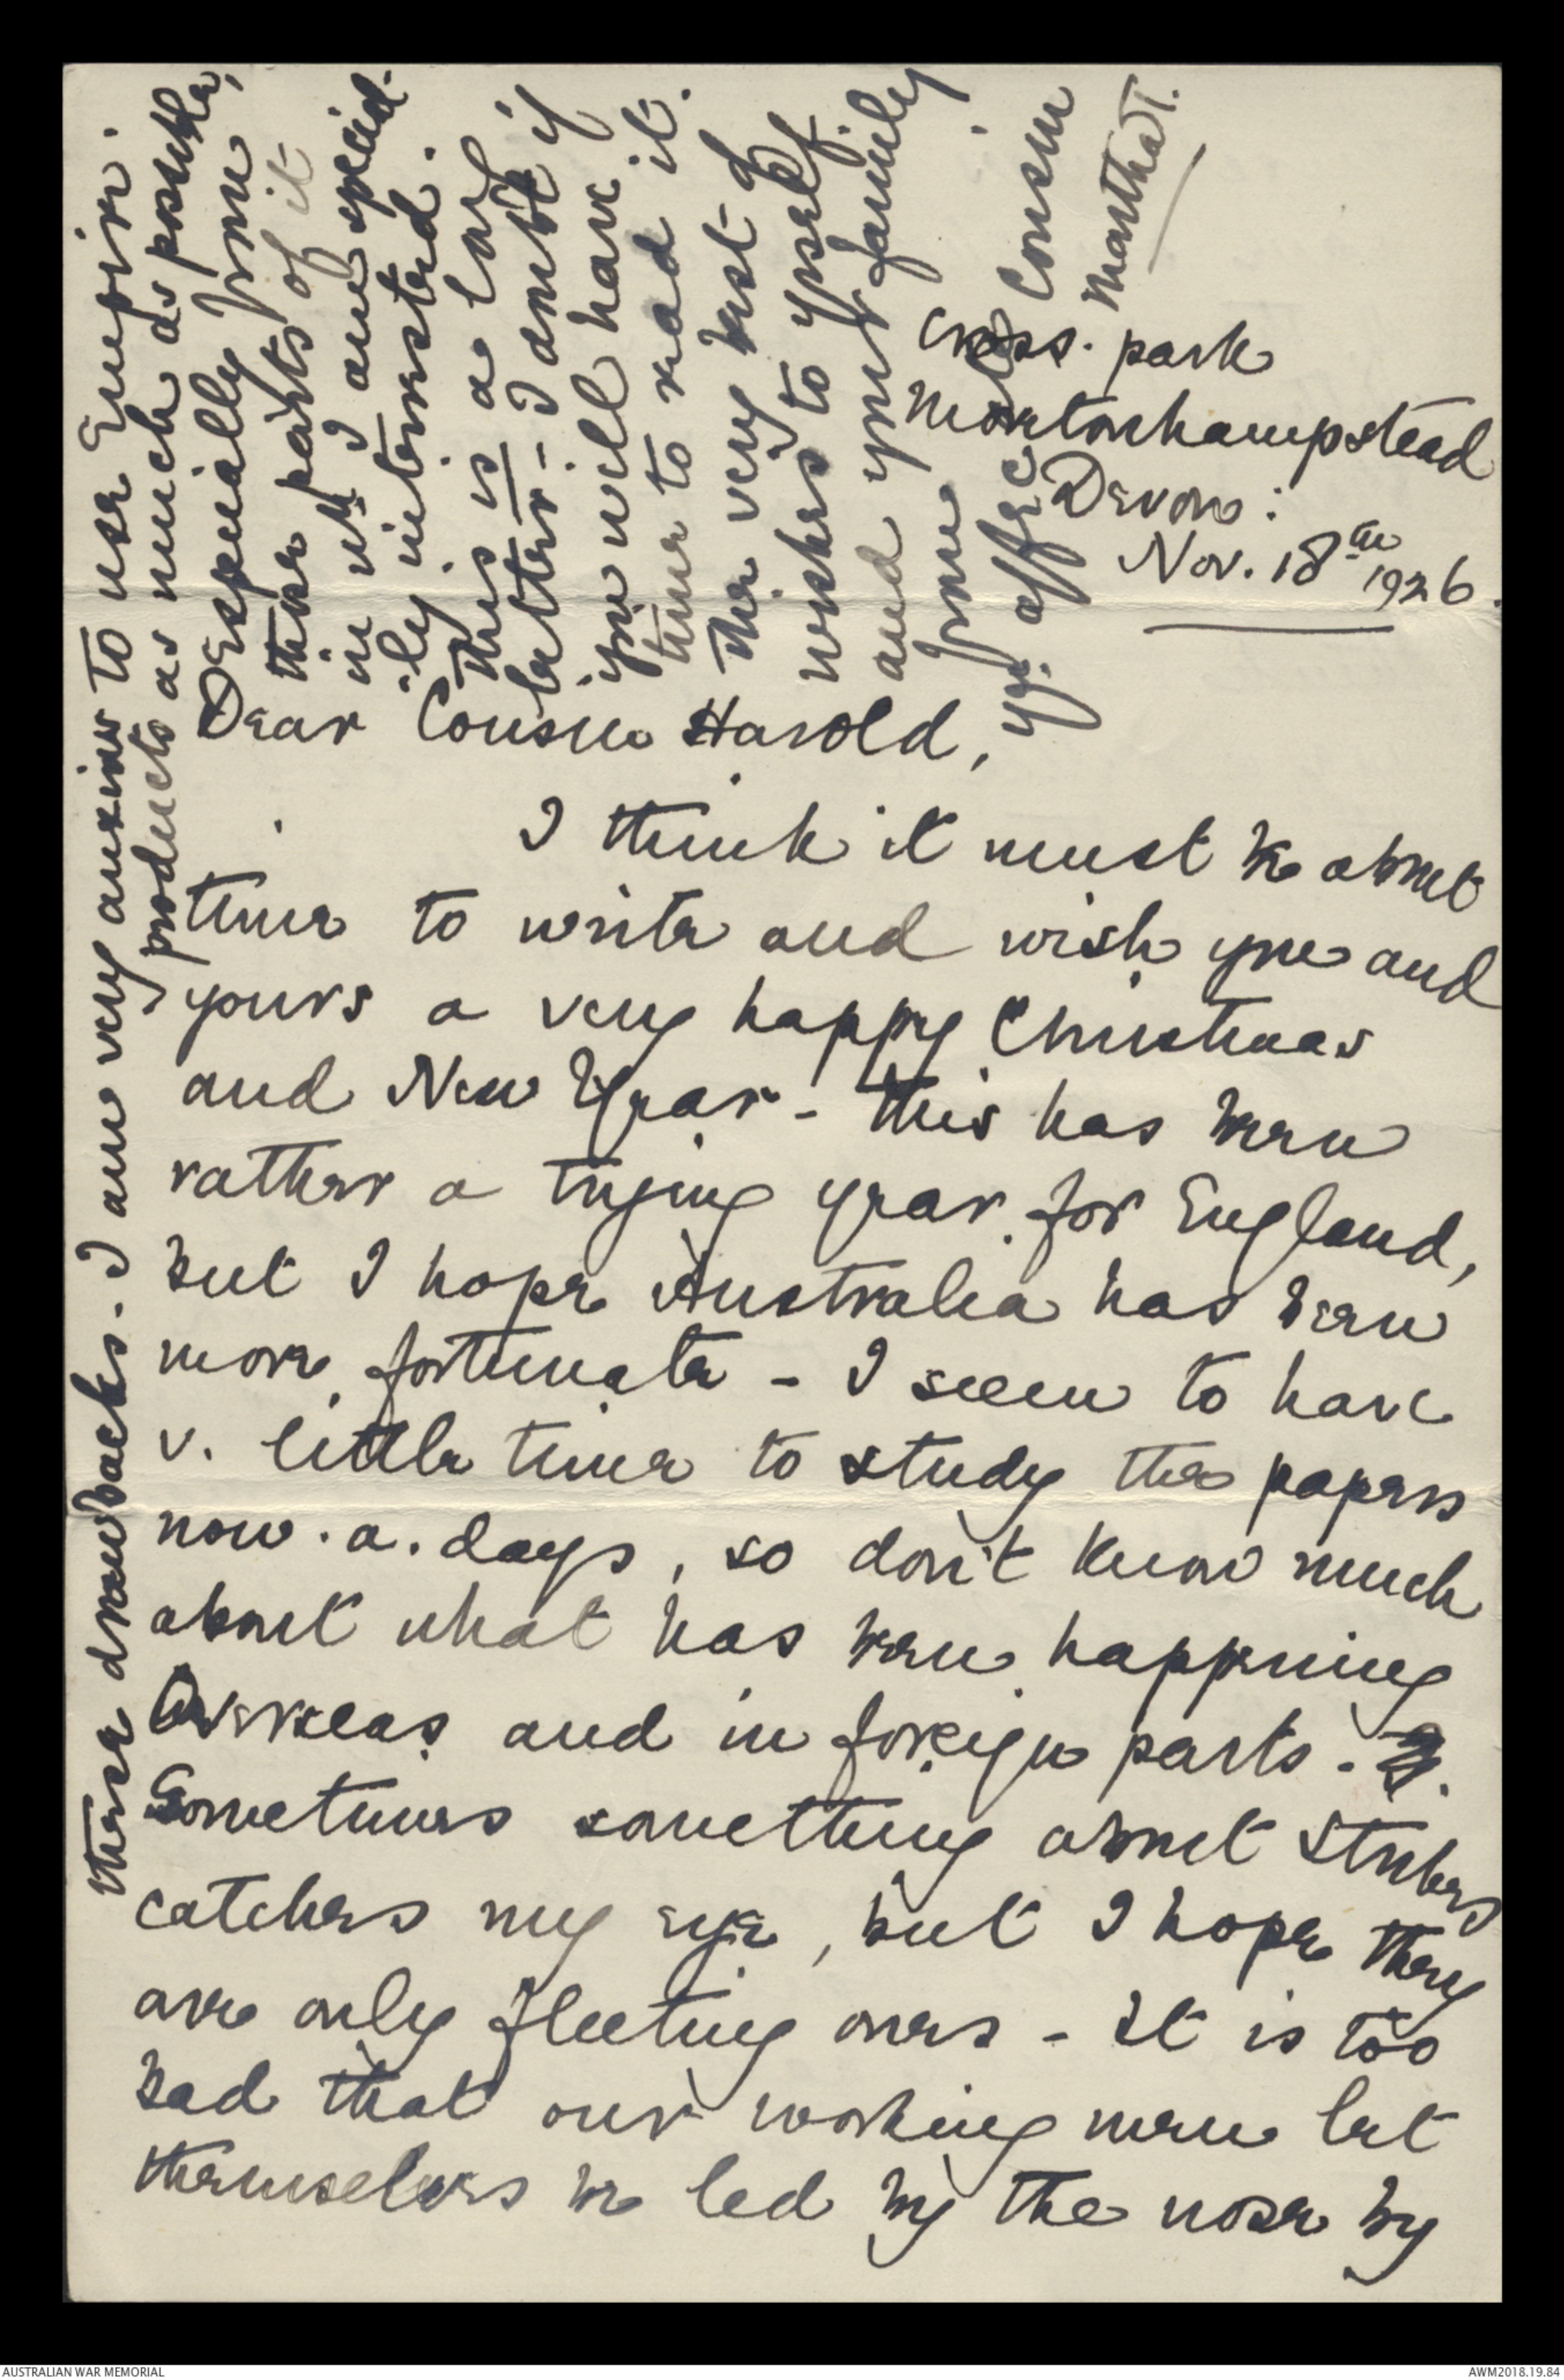 Cross. park
Moretonhampstead
Devon:
Nov. 18th 1926.
Dear Cousin Harold,
I think it must be about
time to write and wish you and
yours a very happy Christmas
and New Year - this has been
rather a trying year for England,
but I hope Australia has been
more fortunate - I seem to have
v. little time to study the papers
now.a.days, so don't know much
about what has been happening
Overseas and in foreign parts -
Sometimes something about strikes
catches my eye, but I hope they
are only fleeting ones - It is too
bad that our working men let
themselves be led by the nose by
these drawbacks. I am very anxious to use Empire
products as much as possible,
Especially from
those parts of it
in wh I am special-
-ly interested.
This is a long
letter - I doubt if
you will have
time to read it.
The very best of
wishes to yrself
and your family
from
yr. affec Cousin
Martha T.
AUSTRALIAN WAR MEMORIAL
AWM2018.19.84